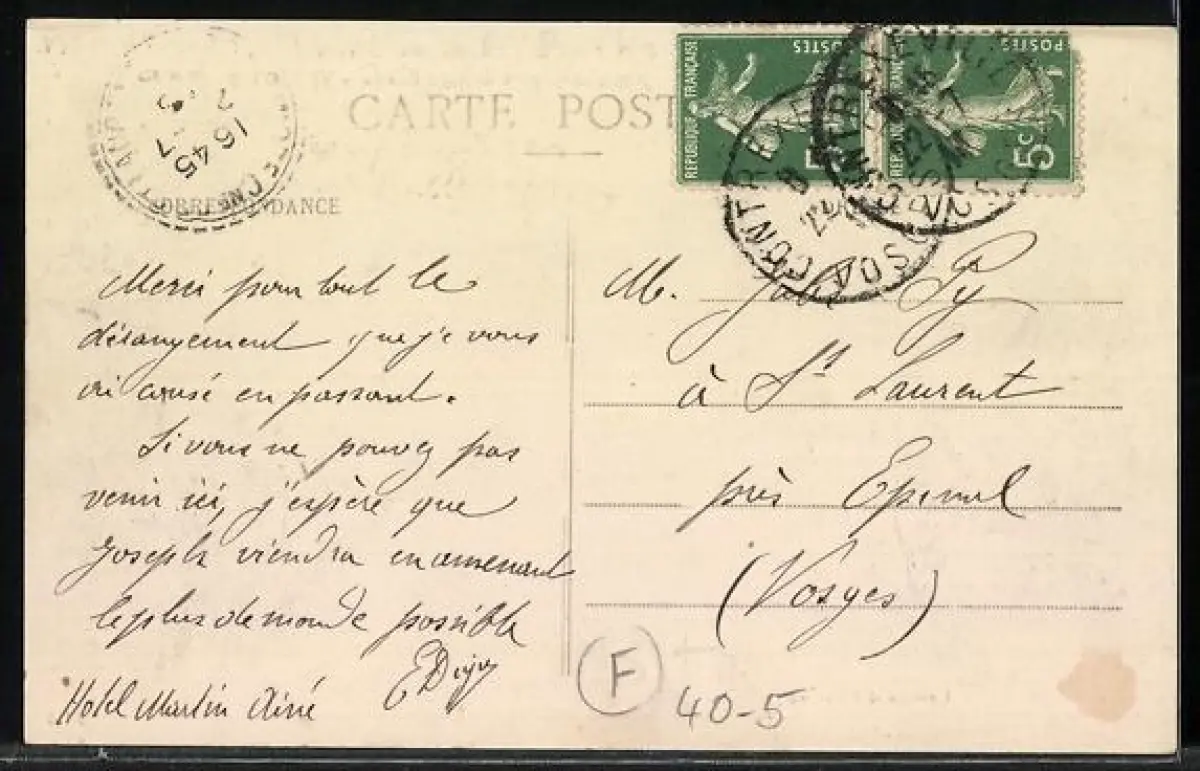 CARTE POST
CORRESPONDANCE
REPUBLIQUE FRANÇAISE
POSTES
5
REPUBLIQUE FRANÇAISE
POSTES
5c
CONTREXEVILLE
VOSGES
CONTREXEV
VOSG
16 45
7
Merci pour tout le
dérangement que je vous
ai causé en passant.
Si vous ne pouvez pas
venir ici, j'espère que
Joseph viendra en amenant
le plus de monde possible
Hotel Martin Ainé
M. Py
à St Laurent
près Epinal
(Vosges)
F
40-5